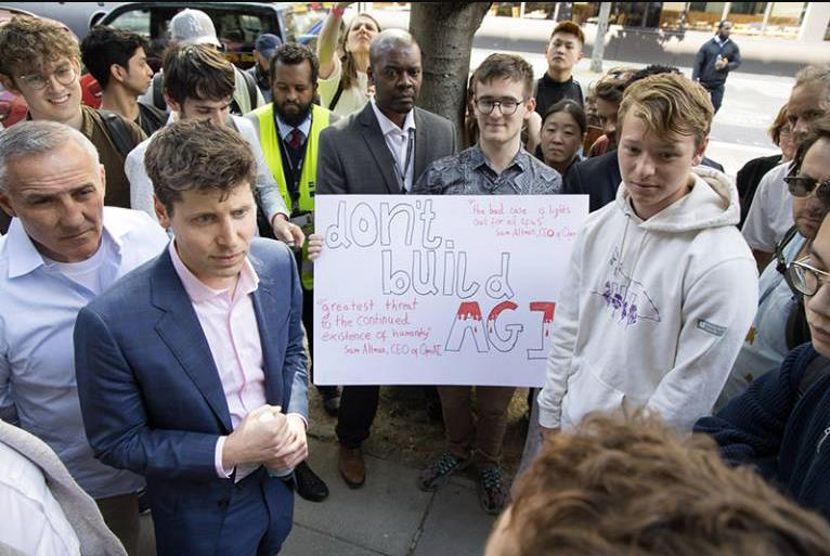 don't
build
AGI
"the bad case is lights
out for all of us"
Sam Altman, CEO of
"greatest threat
to the continued
existence of humanity"
Sam Altman, CEO of OpenAI